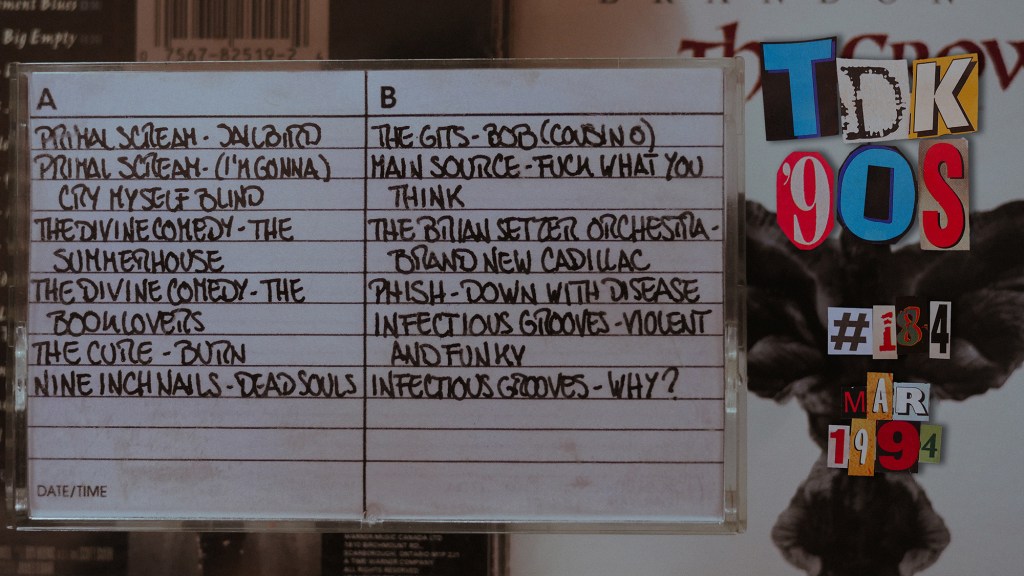 ement Blues
Big Empty
0 7567-82519-2
BRANDON
A
PRIMAL SCREAM - JAILBIRD
PRIMAL SCREAM - (I'M GONNA)
CRY MYSELF BLIND
THE DIVINE COMEDY - THE
SUMMERHOUSE
THE DIVINE COMEDY - THE
BOOKLOVERS
THE CURE - BURN
NINE INCH NAILS - DEAD SOULS
DATE/TIME
B
THE GITS - BOB (COUSIN O)
MAIN SOURCE - FUCK WHAT YOU
THINK
THE BRIAN SETZER ORCHESTRA -
BRAND NEW CADILLAC
PHISH - DOWN WITH DISEASE
INFECTIOUS GROOVES - VIOLENT
AND FUNKY
INFECTIOUS GROOVES - WHY?
TDK
'90S
#184
MAR
1994
WARNER MUSIC CANADA LTD
SCARBOROUGH, ONTARIO
A TIME WARNER COMPANY
ALL RIGHTS RESERVED